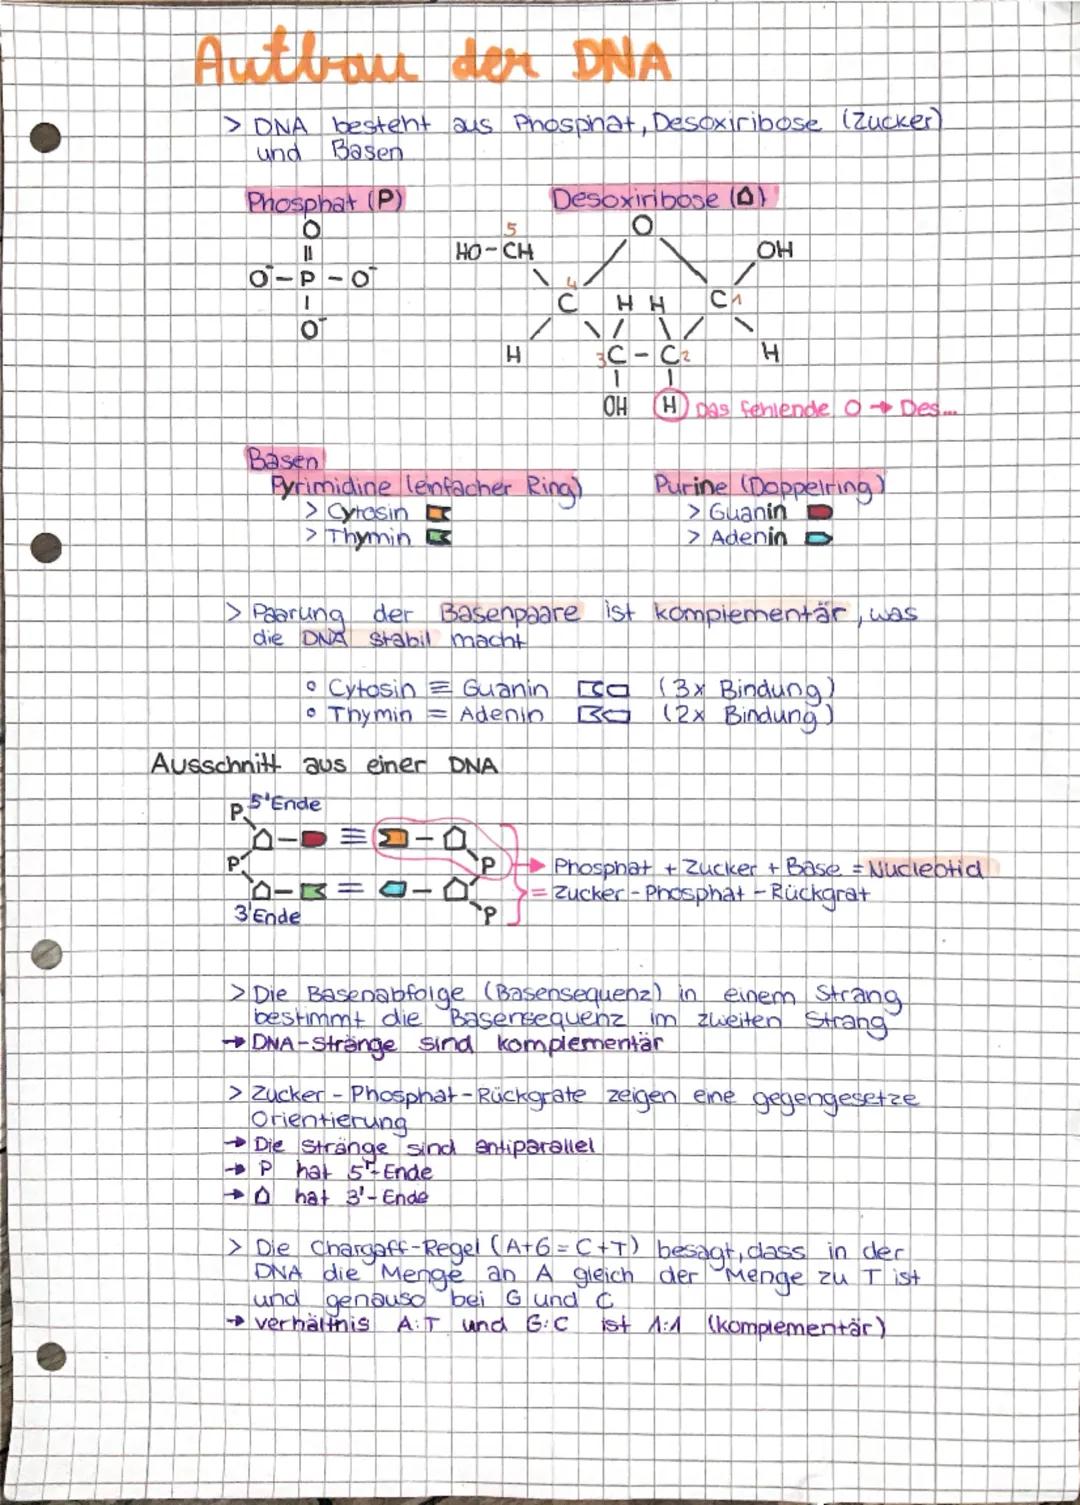 Aufbau der DNA
> DNA besteht aus Phosphat, Desoxiribose (Zucker)
und Basen
Phosphat (P)
Desoxiribose (⌂)
O
||
O⁻-P-O⁻
|
O⁻
5
HO-CH
O
OH
4
C
H H
C 1
H
3 C - C 2
H
OH
H Das fehlende O → Des...
Basen
Pyrimidine (einfacher Ring)
Purine (Doppelring)
> Cytosin
> Guanin
> Thymin
> Adenin
> Paarung der Basenpaare ist komplementär, was
die DNA stabil macht
° Cytosin ≡ Guanin (3x Bindung)
° Thymin = Adenin (2x Bindung)
Ausschnitt aus einer DNA
P 5'Ende
≡
P
P
→ Phosphat + Zucker + Base = Nucleotid
=
= Zucker-Phosphat-Rückgrat
3'Ende
P
> Die Basenabfolge (Basensequenz) in einem Strang
bestimmt die Basensequenz im zweiten Strang
→ DNA-Stränge sind komplementär
> Zucker-Phosphat-Rückgrate zeigen eine gegengesetze
Orientierung
→ Die Stränge sind antiparallel
→ P hat 5'-Ende
→ ⌂ hat 3'-Ende
> Die Chargaff-Regel (A+G=C+T) besagt, dass in der
DNA die Menge an A gleich der Menge zu T ist
und genauso bei G und C
→ verhältnis A:T und G:C ist 1:1 (komplementär)